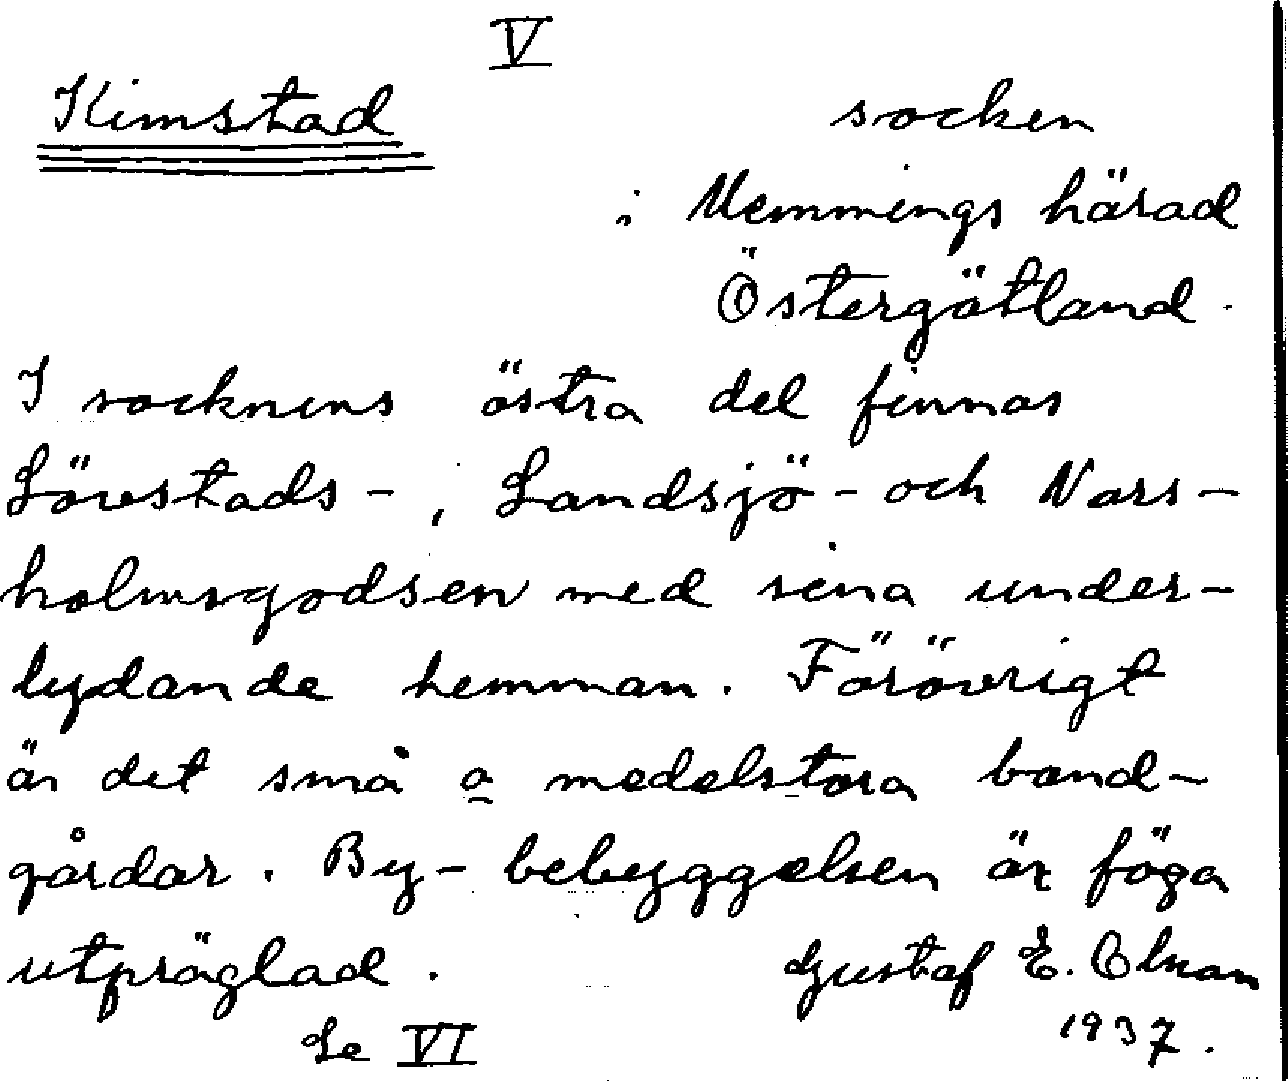 V
Kimstad socken
i Memmings härad
Östergötland.
I socknens östra del finnas
Lövstads-, Landsjö- och Nors-
holmsgodsen med sina under-
lydande hemman. Förövrigt
är det små o medelstora bond-
gårdar. By-bebyggelsen är föga
utpräglad. Gustaf E. Olson
Se VI 1937.